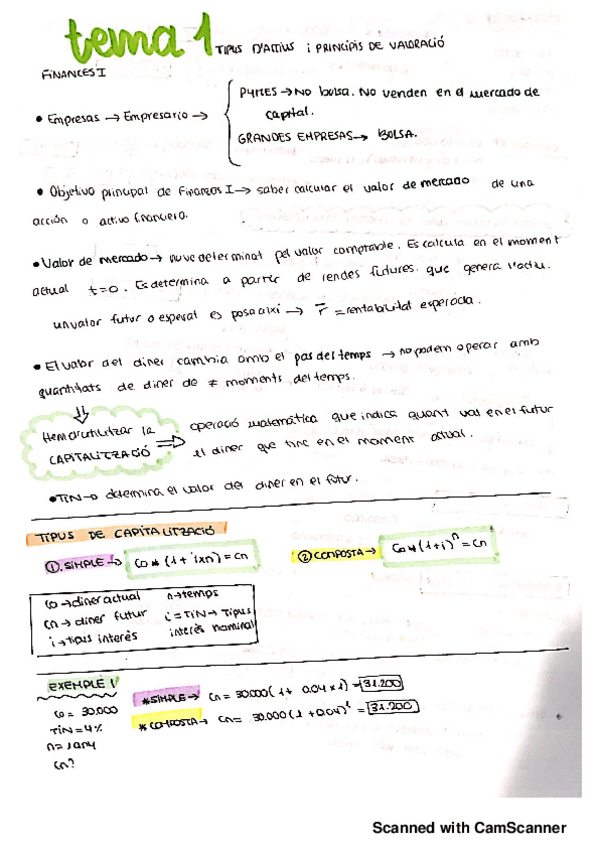 tema 1 TIPUS D'ACTIUS i PRINCIPIS DE VALORACIÓ
FINANCES I
• Empresas → Empresario →
PYMES → No bolsa. No venden en el mercado de
capital.
GRANDES EMPRESAS → BOLSA.
• Objetivo principal de Finances I → saber calcular el valor de mercado de una
acción o activo financiero.
• Valor de mercado → no ve determinat pel valor comptable. Es calcula en el moment
actual t=0. Es determina a partir de rendes futures que genera l'actiu.
un valor futur o esperat es posa així → r̅ = rentabilitat esperada.
• El valor del diner cambia amb el pas del temps → no podem operar amb
quantitats de diner de ≠ moments del temps.
⇓
Hem d'utilitzar la
CAPITALITZACIÓ
⇒ operació matemàtica que indica quant val en el futur
el diner que tinc en el moment actual.
• TIN → determina el valor del diner en el futur.
TIPUS DE CAPITALITZACIÓ
① SIMPLE → Co * (1 + i x n) = Cn
② COMPOSTA → Co * (1+i)ⁿ = Cn
Co → diner actual n → temps
Cn → diner futur i = TIN → Tipus
i → tipus interès interès nominal
EXEMPLE 1
Co = 30.000
TIN = 4%
n = 1 any
Cn?
* SIMPLE → Cn = 30.000 (1 + 0.04 x 1) = 31.200
* COMPOSTA → Cn = 30.000 (1 + 0.04)¹ = 31.200
Scanned with CamScanner